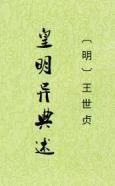 皇明异典述
〔明〕王世贞